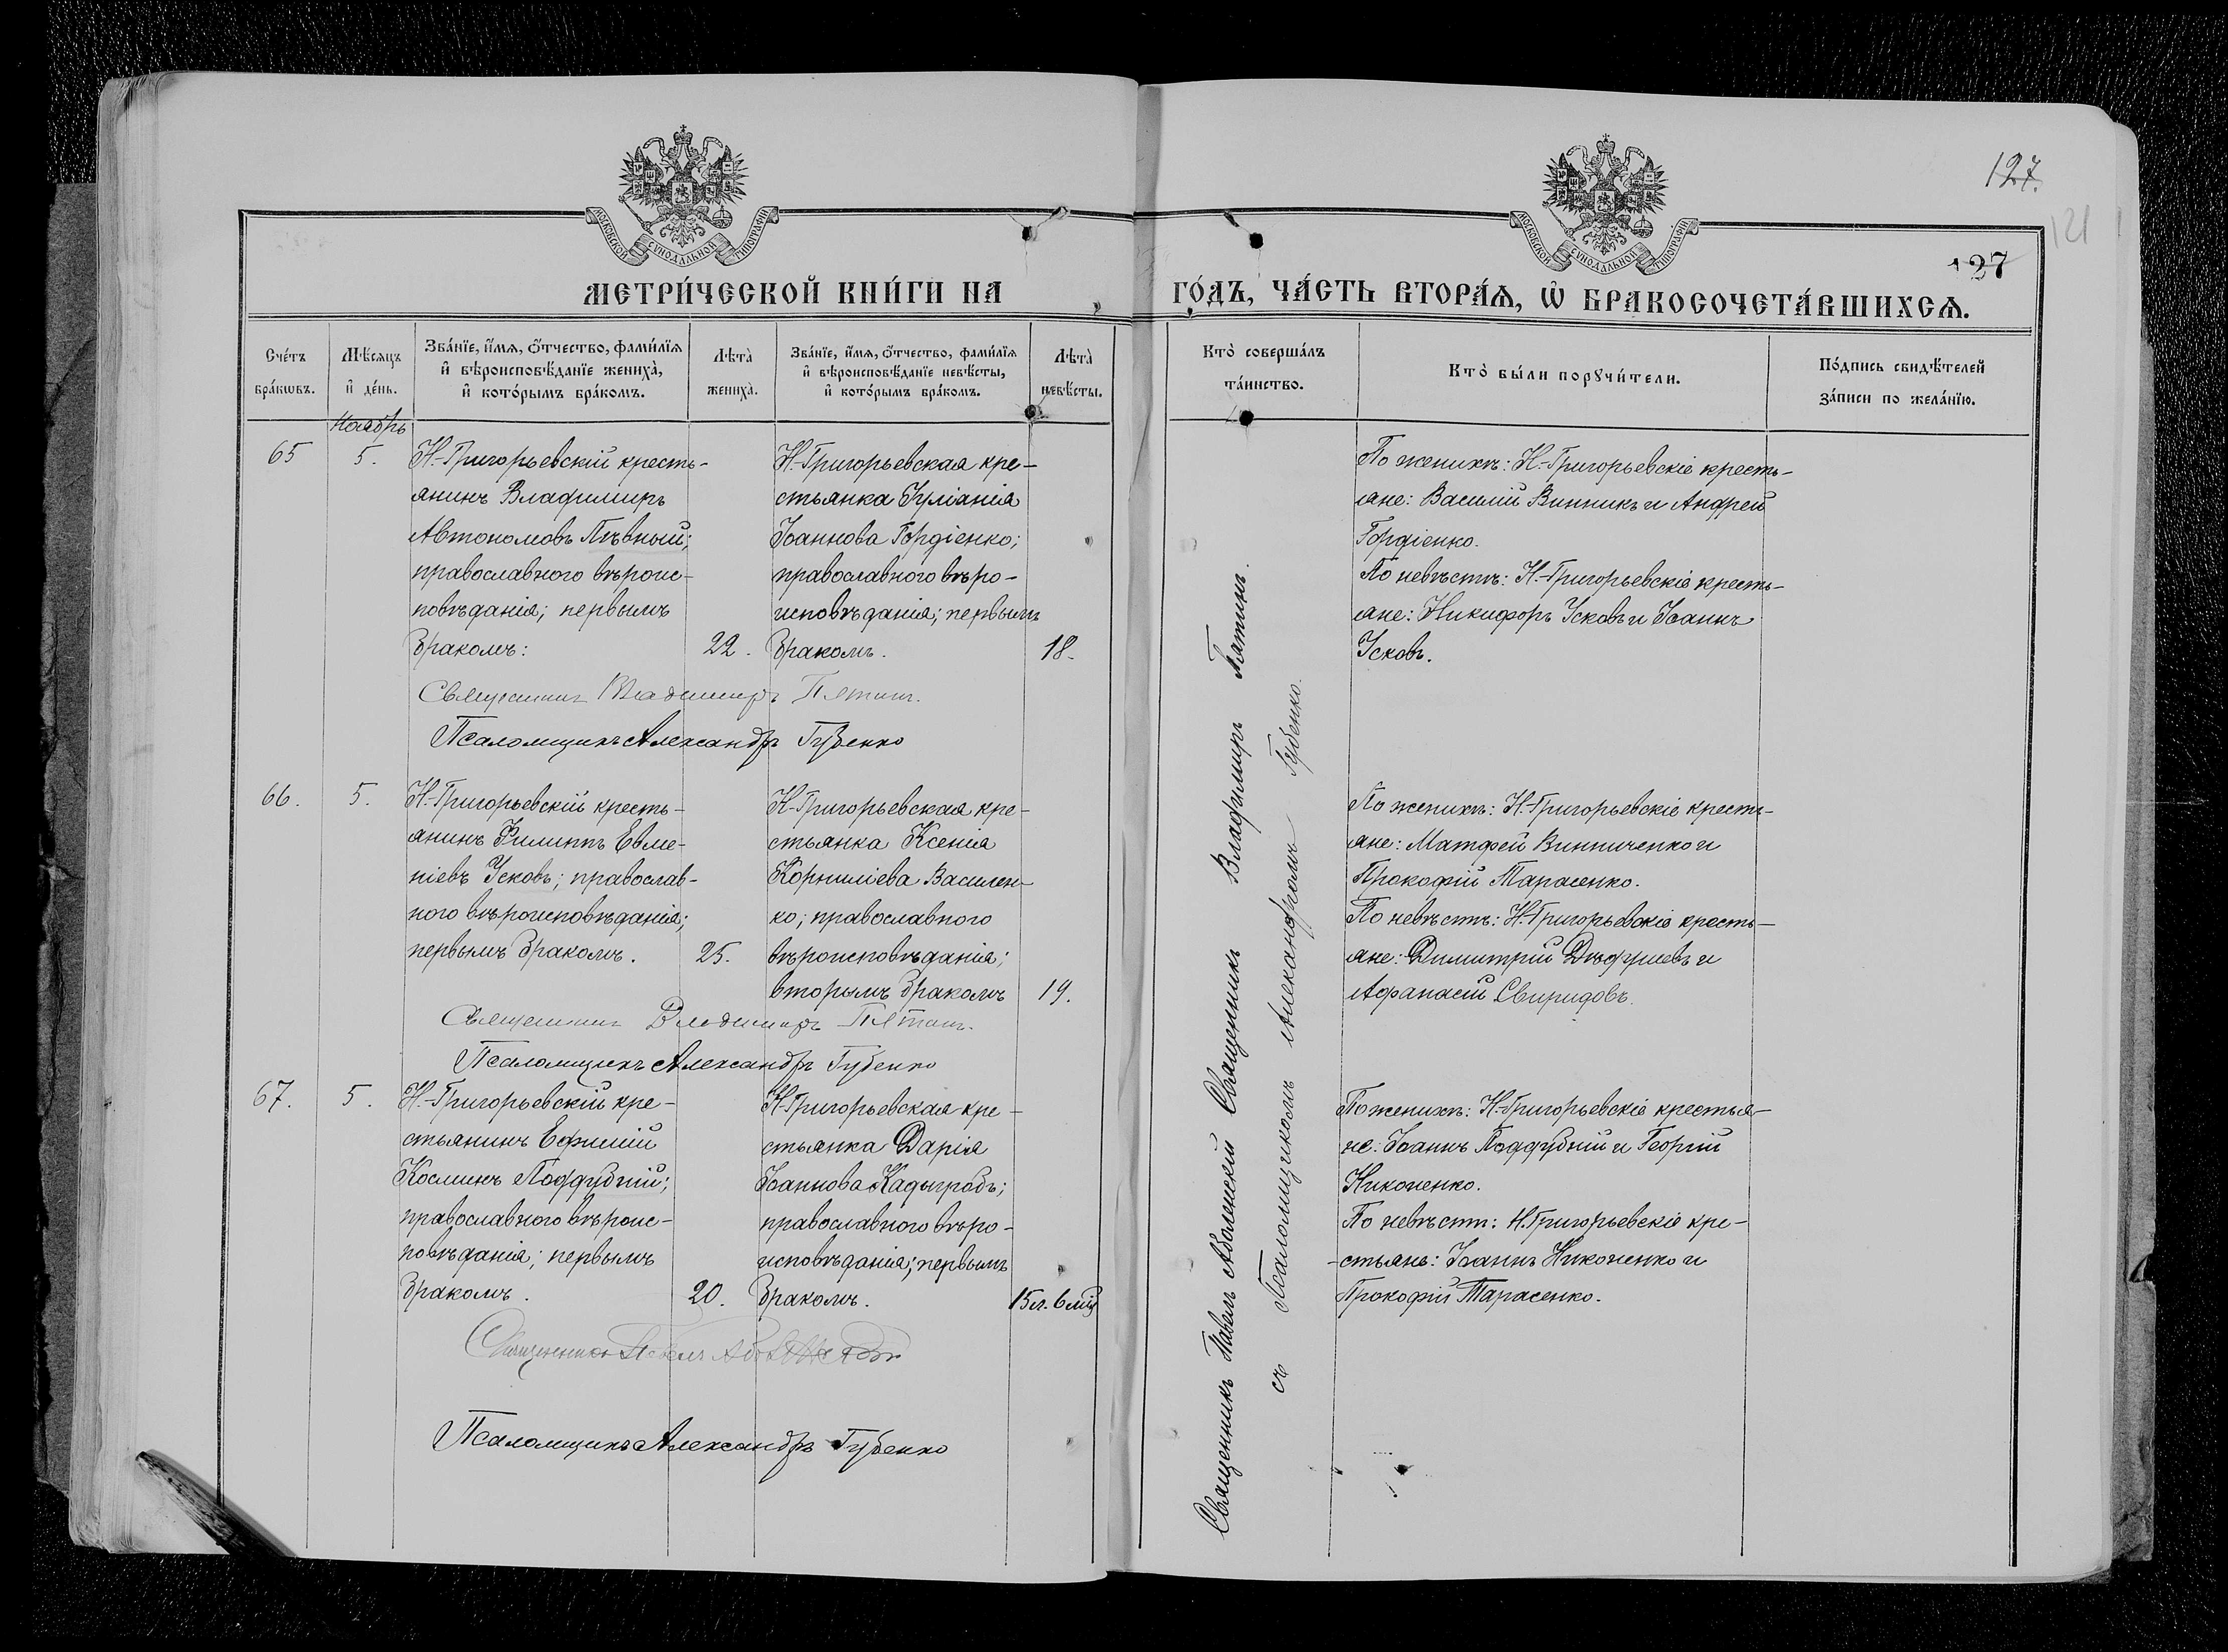 127.
121
127
МОСКОВСКОЙ СУНОДАЛЬНОЙ ТИПОГРАФІИ
МОСКОВСКОЙ СУНОДАЛЬНОЙ ТИПОГРАФІИ
МЕТРИ́ЧЕСКОЙ КНИ́ГИ НА
ГО́ДЪ, ЧА́СТЬ ВТОРА́Ѧ, Ѽ БРАКОСОЧЕТА́ВШИХСѦ.
Сче́тъ
бра́кѡвъ.
Мѣ́сѧцъ
и҆ де́нь.
Зва́нїе, и҆́мѧ, ѻ҆́тчество, фами́лїѧ
и҆ вѣроисповѣ́данїе жениха̀,
и҆ кото́рымъ бра́комъ.
Лѣта̀
жениха̀.
Зва́нїе, и҆́мѧ, ѻ҆́тчество, фами́лїѧ
и҆ вѣроисповѣ́данїе невѣ́сты,
и҆ кото́рымъ бра́комъ.
Лѣта̀
невѣ́сты.
Кто̀ соверша́лъ
та́инство.
Кто̀ бы́ли порꙋчи́тели.
По́дпись свидѣ́телей
за́писи по жела́нїю.
Ноябрь
65
5.
Н.-Григорьевскій кресть-
янинъ Владимиръ
Автономовъ Пѣвный;
православного вѣроис-
повѣданія; первымъ
бракомъ:
22.
Н.-Григорьевская кре-
стьянка Іуліанія
Іоаннова Гордіенко;
православного вѣро-
исповѣданія; первымъ
бракомъ.
18.
По женихѣ: Н.-Григорьевскіе кресть-
яне: Василій Винникъ и Андрей
Гордіенко.
По невѣстѣ: Н.-Григорьевскіе кресть-
яне: Никифоръ Усковъ и Іоаннъ
Усковъ.
Священникъ Владимиръ Пятинъ.
Псаломщикъ Александръ Губенко
66.
5.
Н.-Григорьевскій кресть-
янинъ Филиппъ Евме-
ніевъ Усковъ; православ-
ного вѣроисповѣданія;
первымъ бракомъ.
25.
Н-Григорьевская кре-
стьянка Ксенія
Корниліева Василен-
ко; православного
вѣроисповѣданія;
вторымъ бракомъ
19.
По женихѣ: Н.-Григорьевскіе кресть-
яне: Матфей Винниченко и
Прокофій Тарасенко.
По невѣстѣ: Н.-Григорьевскіе кресть-
яне: Димитрій и
Афанасій Свиридовъ.
Священникъ Владимиръ Пятинъ.
Псаломщикъ Александръ Губенко
67.
5.
Н.-Григорьевскій кре-
стьянинъ Ефимій
Косминъ Поддубній;
православного вѣроис-
повѣданія; первымъ
бракомъ.
20.
Н-Григорьевская кре-
стьянка Дарія
Іоаннова Кадыгробъ;
православного вѣро-
исповѣданія; первымъ
бракомъ.
15 л. 6 мц
По женихѣ: Н.-Григорьевскіе крестья-
не: Іоаннъ Поддубній и Георгій
Никоненко.
По невѣстѣ: Н.Григорьевскіе кре-
-стьяне: Іоаннъ Никоненко и
Прокофій Тарасенко.
Священникъ Павелъ
Псаломщикъ Александръ Губенко
Священникъ Павелъ Аболенскій Священникъ Владимиръ Пятинъ.
съ Псаломщикомъ Александромъ Губенко.